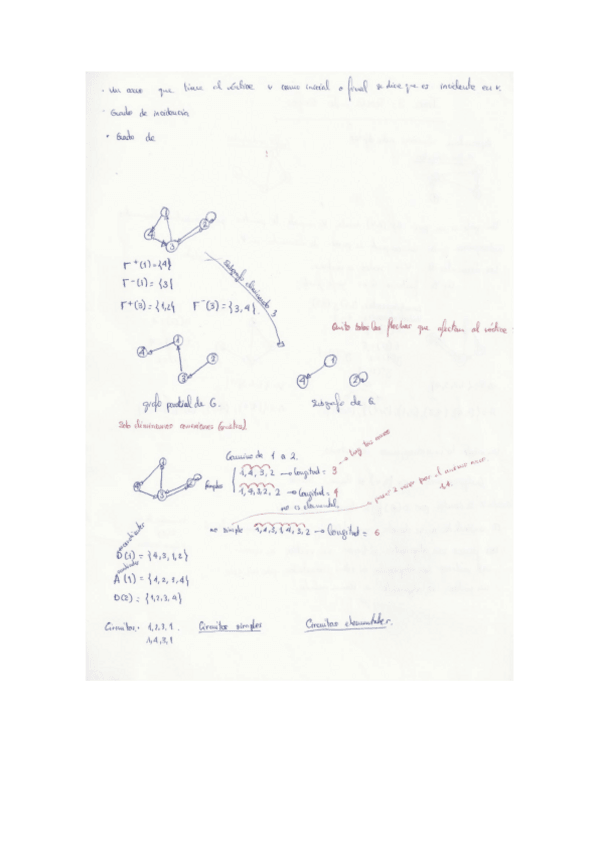 · Un arco que tiene el vértice v como inicial o final se dice que es incidente en v.
· Grado de incidencia
· Grado de
1
4
3
2
Γ⁺(1)={4}
Γ⁻(1)={3}
Γ⁺(3)={1,2} Γ⁻(3)={3,4}.
subgrafo eliminando 3
Quito todas las flechas que afectan al vértice
4 1 3 2
1 4 2
grafo parcial de G.
Subgrafo de G
Solo eliminamos conexiones (aristas)
1 4 3 2
Caminos de 1 a 2.
Simples
1,4,3,2 → longitud = 3 → hay tres arcos
1,4,3,2,2 → longitud = 4
no es elemental
pasa 2 veces por el mismo
no simple 1,4,3,1,4,3,2 → longitud = 6
D(1) = {4,3,1,2}
A(1) = {1,2,3,4}
D(2) = {1,2,3,4}
Circuitos: 1,2,3,1. Circuitos simples Circuitos elementales.
1,4,3,1